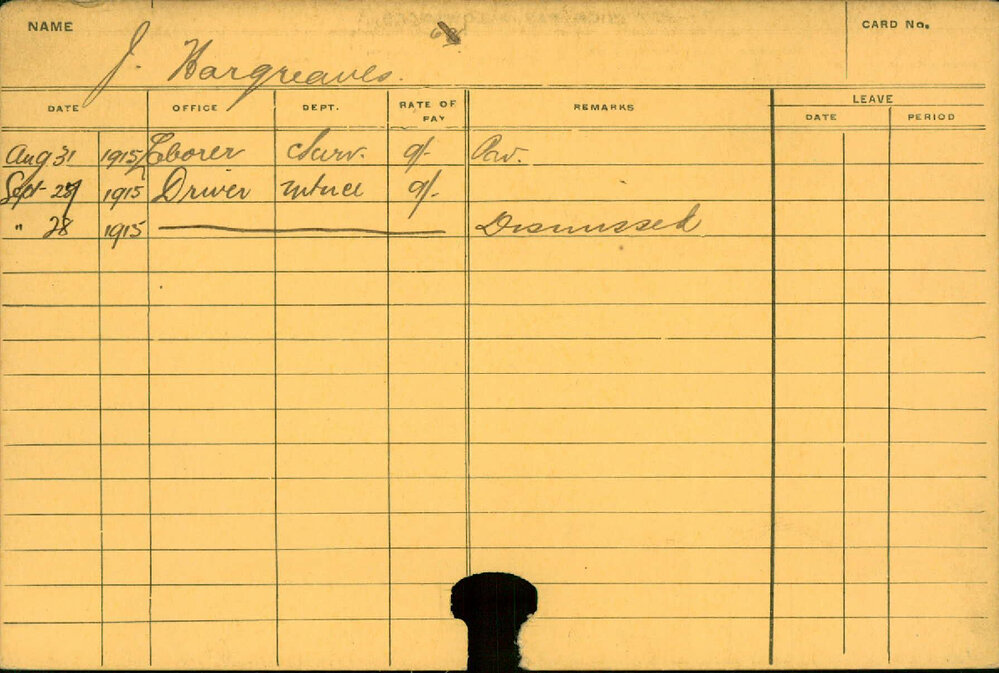 NAME
CARD No.
J. Hargreaves.
DATE OFFICE DEPT. RATE OF PAY REMARKS LEAVE
DATE PERIOD
Aug 31 1915 Laborer Surv. 9/-
Sept 27 1915 Driver Mtnce 9/-
" 28 1915 Dismissed